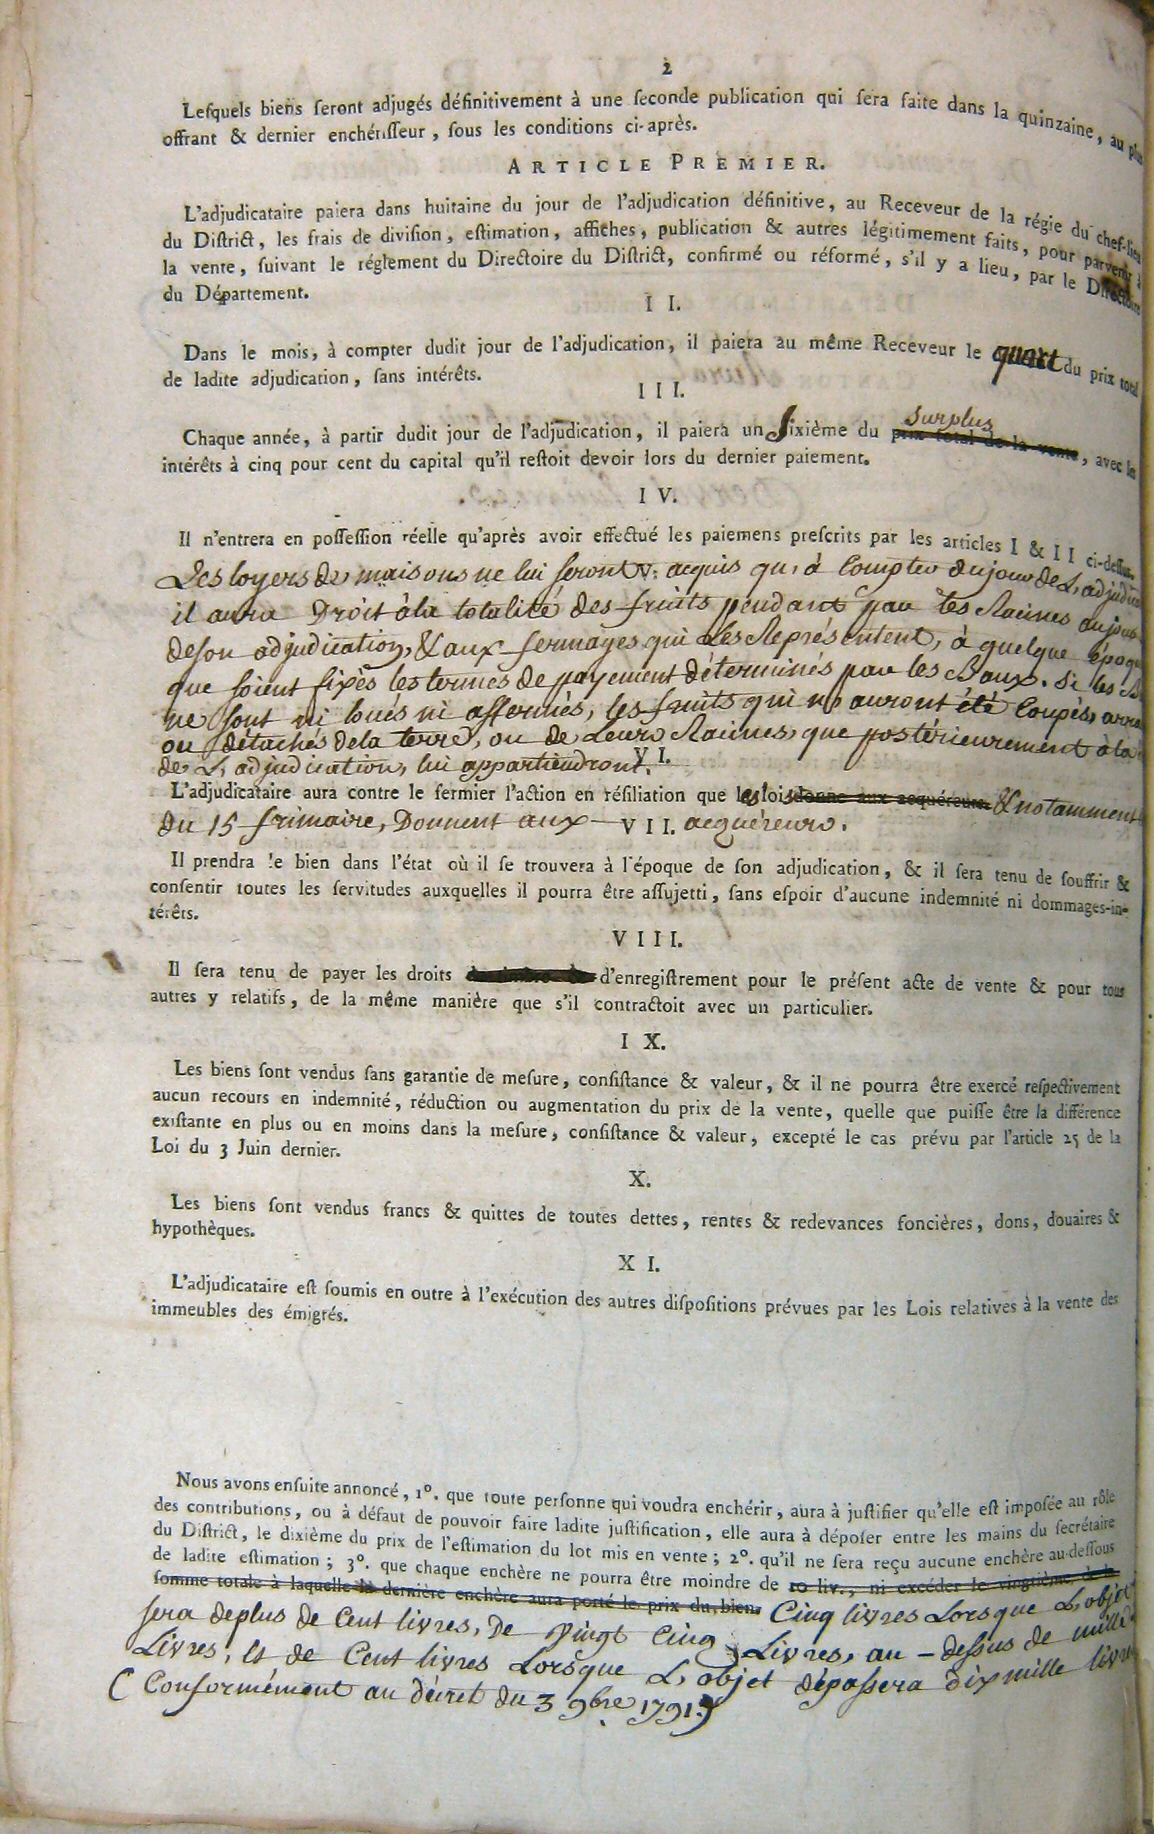 2
Lesquels biens seront adjugés définitivement à une seconde publication qui sera faite dans la quinzaine, au plus
offrant & dernier enchérisseur, sous les conditions ci-après.
ARTICLE PREMIER.
L'adjudicataire paiera dans huitaine du jour de l'adjudication définitive, au Receveur de la régie du chef-lieu
du District, les frais de division, estimation, affiches, publication & autres légitimement faits, pour parvenir à
la vente, suivant le réglement du Directoire du District, confirmé ou réformé, s'il y a lieu, par le Directoire
du Département.
II.
Dans le mois, à compter dudit jour de l'adjudication, il paiera au même Receveur le quart du prix total
de ladite adjudication, sans intérêts.
III.
surplus
Chaque année, à partir dudit jour de l'adjudication, il paiera un Sixième du prix total de la vente, avec les
intérêts à cinq pour cent du capital qu'il restoit devoir lors du dernier paiement.
IV.
Il n'entrera en possession réelle qu'après avoir effectué les paiemens prescrits par les articles I & II ci-dessus.
Les loyers des maisons ne lui seront V. acquis qu'à Compter du jour de L'adjudica
il aura Droit à la totalité des fruits pendant par les Racines au jour
de son adjudication, & aux fermages qui Les Représentent, à quelque époque
que soient fixés les termes de payement déterminés par les Baux. Si les
ne sont ni loués ni affermés, les fruits qui n'auront été Coupés, arra
ou détachés de la terre, ou de Leurs Racines, que postérieurement à la
de L'adjudication, lui appartiendront.
VI.
L'adjudicataire aura contre le fermier l'action en résiliation que les lois donne aux acquéreurs & notamment
du 15 frimaire, Donnent aux VII. acquéreurs.
Il prendra le bien dans l'état où il se trouvera à l'époque de son adjudication, & il sera tenu de souffrir &
consentir toutes les servitudes auxquelles il pourra être assujetti, sans espoir d'aucune indemnité ni dommages-in-
térêts.
VIII.
Il sera tenu de payer les droits d'enregistrement pour le présent acte de vente & pour tous
autres y relatifs, de la même manière que s'il contractoit avec un particulier.
IX.
Les biens sont vendus sans garantie de mesure, consistance & valeur, & il ne pourra être exercé respectivement
aucun recours en indemnité, réduction ou augmentation du prix de la vente, quelle que puisse être la différence
existante en plus ou en moins dans la mesure, consistance & valeur, excepté le cas prévu par l'article 25 de la
Loi du 3 Juin dernier.
X.
Les biens sont vendus francs & quittes de toutes dettes, rentes & redevances foncières, dons, douaires &
hypothèques.
XI.
L'adjudicataire est soumis en outre à l'exécution des autres dispositions prévues par les Lois relatives à la vente des
immeubles des émigrés.
Nous avons ensuite annoncé, 1°. que toute personne qui voudra enchérir, aura à justifier qu'elle est imposée au rôle
des contributions, ou à défaut de pouvoir faire ladite justification, elle aura à déposer entre les mains du secrétaire
du District, le dixième du prix de l'estimation du lot mis en vente ; 2°. qu'il ne sera reçu aucune enchère au-dessous
de ladite estimation ; 3°. que chaque enchère ne pourra être moindre de 10 liv., ni excéder le vingtième de la
somme totale à laquelle la dernière enchère aura porté le prix du bien. Cinq livres Lorsque L'objet
sera de plus de Cent livres, De Vingt Cinq Livres, au-dessus de mille
Livres, et de Cent livres Lorsque L'objet dépassera dix mille livres
( Conformément au décret du 3 9bre 1791.)